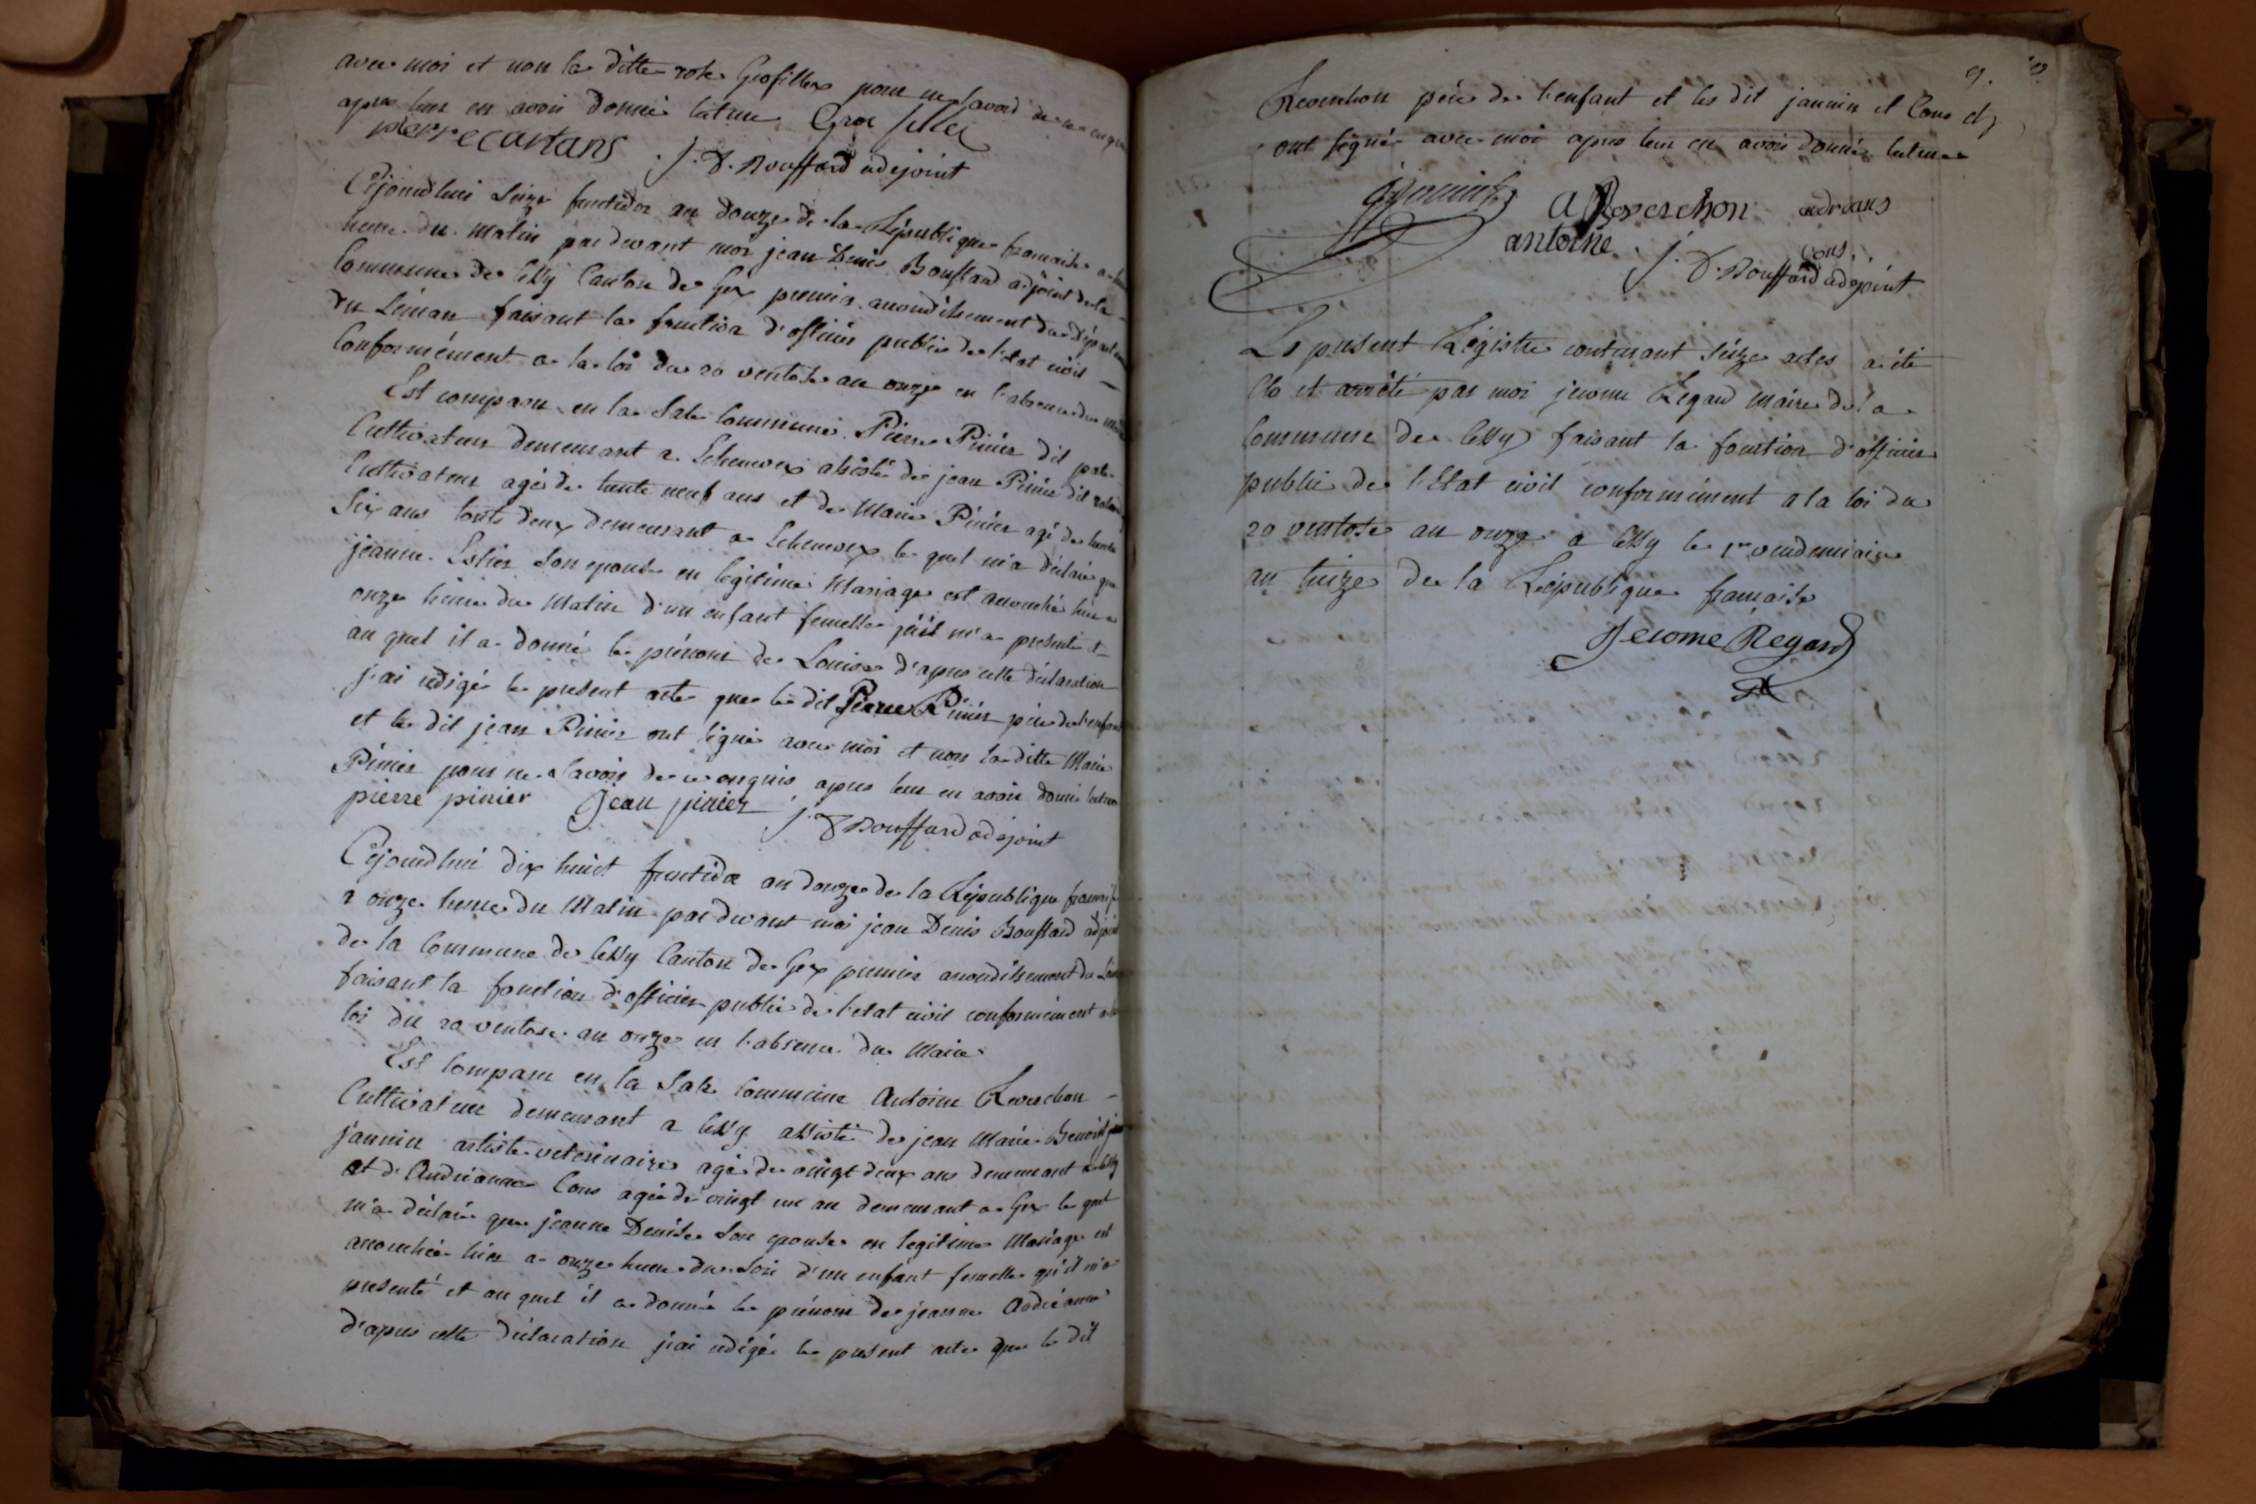 avec moi et non la ditte rose Grosfillex pour ne savoir de ce enquis
apres leur en avoir donné lecture Gros fillex
pierre cartans J. D. Bouffard adejoint
Cejourdhui seize fructidor an douze de la République francaise a
heure du matin par devant moi jean Denis Bouffard adjoint de la
Commune de Cessy Canton de Gex premier arrondissement du département
du Léman faisant la fonction d'officier public de l'etat civil
Conformément a la loi du 20 ventose an onze en l'absence du maire
Est comparu en la Sale Commune Pierre Pinier dit
Cultivateur demeurant a Echenevex assisté de jean Pinier dit
Cultivateur agé de trente neuf ans et de Marie Pinier agé de trente
six ans touts deux demeurant a Echenevex le quel m'a déclaré que
jeanne Estier son epouse en legitime Mariage est accouchée hier a
onze heure du Matin d'un enfant femelle qu'il m'a presenté et
au quel il a donné le prénom de Louise d'apres cette déclaration
j'ai redigé le present acte que le dit Pierre Pinier père de l'enfant
et le dit jean Pinier ont signé avec moi et non la ditte Marie
Pinier pour ne savoir de ce enquis apres leur en avoir donné lecture
pierre pinier jean pinier J. D Bouffard adejoint
Cejourdhui dix huict fructidor an douze de la République francaise
a onze heure du Matin par devant moi jean Denis Bouffard adjoint
de la Commune de Cessy Canton de Gex premier arrondissement du Léman
faisant la fonction d'officier public de l'etat civil conformément a la
loi du 20 ventose an onze en l'absence du Maire
Est Comparu en la Sale Commune Antoine Reverchon
Cultivateur demeurant a Cessy assisté de jean Marie Benoit
jannin artiste veterinaire agé de vingt deux ans demeurant a Cessy
et d'Andréanne Cons agée de vingt un an demeurant a Gex le quel
m'a déclaré que jeanne Denise son epouse en legitime Mariage est
accouchée hier a onze heure du soir d'un enfant femelle qu'il m'a
presenté et au quel il a donné le prénom de jeanne Andréanne
d'apres cette déclaration j'ai redigé le present acte que le dit
9.
Reverchon père de l'enfant et les dit jannin et Cons
ont signé avec moi apres leur en avoir donné lecture
a Reverchon
antoine
Cons
J. D. Bouffard adejoint
Le present Régistre contenant seize actes a été
Clo et arrêté par moi jerome Regard maire de la
Commune de Cessy faisant la fonction d'officier
public de l'Etat civil conformément a la loi du
20 ventose an onze a Cessy le 1er vendemiaire
an treize de la République francaise
Jerome Regard